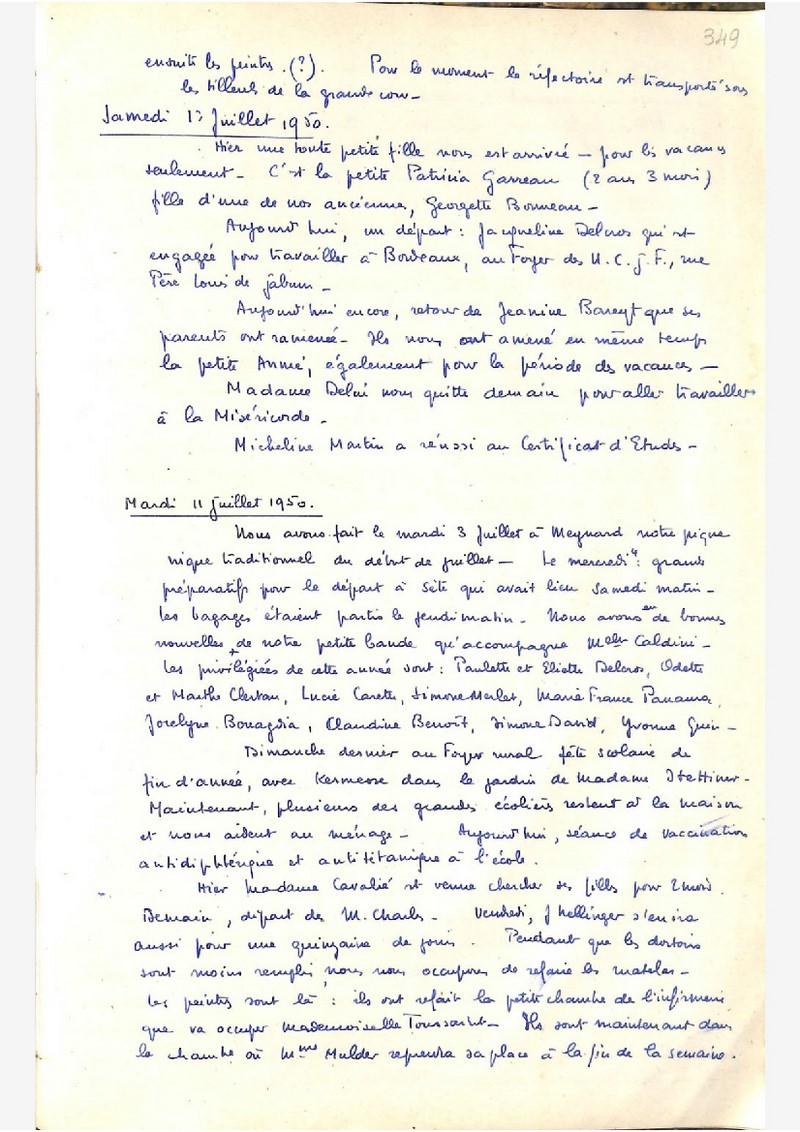 349
ensuite les peintres. (?). Pour le moment le réfectoire est transporté sous
les tilleuls de la grande cour -
Samedi 1 Juillet 1950.
Hier une toute petite fille nous est arrivée - pour les vacances
seulement - C'est la petite Patricia Garreau (2 ans 3 mois)
fille d'une de nos anciennes, Georgette Bonneau -
Aujourd'hui, un départ : Jacqueline Delcros qui est
engagée pour travailler à Bordeaux, au Foyer des U.C.J.F., rue
Père Louis de
Aujourd'hui encore, retour de Jeanine Bareyt que ses
parents ont ramenée - Ils nous ont amené en même temps
la petite Annie, également pour la période des vacances -
Madame nous quitte demain pour aller travailler
à la Miséricorde -
Micheline Martin a réussi au Certificat d'Etudes -
Mardi 11 Juillet 1950.
Nous avons fait le mardi 3 Juillet à Meynard notre pique
nique traditionnel du début de juillet - Le mercredi 4 : grands
préparatifs pour le départ à Sète qui avait lieu samedi matin -
les bagages étaient partis le jeudi matin - Nous avons eu de bonnes
nouvelles + de notre petite bande qu'accompagne Melle Caldini -
Les privilégiées de cette année sont : Paulette et Eliette Delcros, Odette
et Marthe Clertau, Lucie Carette, Simone Merlet, Marie France Panama,
Jocelyne, Claudine Benoît, Simone David, Yvonne Guin -
Dimanche dernier au Foyer rural fête scolaire de
fin d'année, avec Kermesse dans le jardin de Madame
Maintenant, plusieurs des grandes écoliers restent à la maison
et nous aident au ménage - Aujourd'hui, séance de vaccination
antidiphtérique et antitétanique à l'école.
Hier Madame Cavalié est venue chercher ses filles pour 2 mois.
Demain, départ des M. Charles - Vendredi, J Kellinger s'en ira
aussi pour une quinzaine de jours. Pendant que les dortoirs
sont moins remplis, nous nous occupons de refaire les matelas -
les peintres sont là : ils ont refait la petite chambre de l'infirmerie
que va occuper Mademoiselle Toussaint - Ils sont maintenant dans
la chambre où Mme Mulder reprendra sa place à la fin de la semaine.